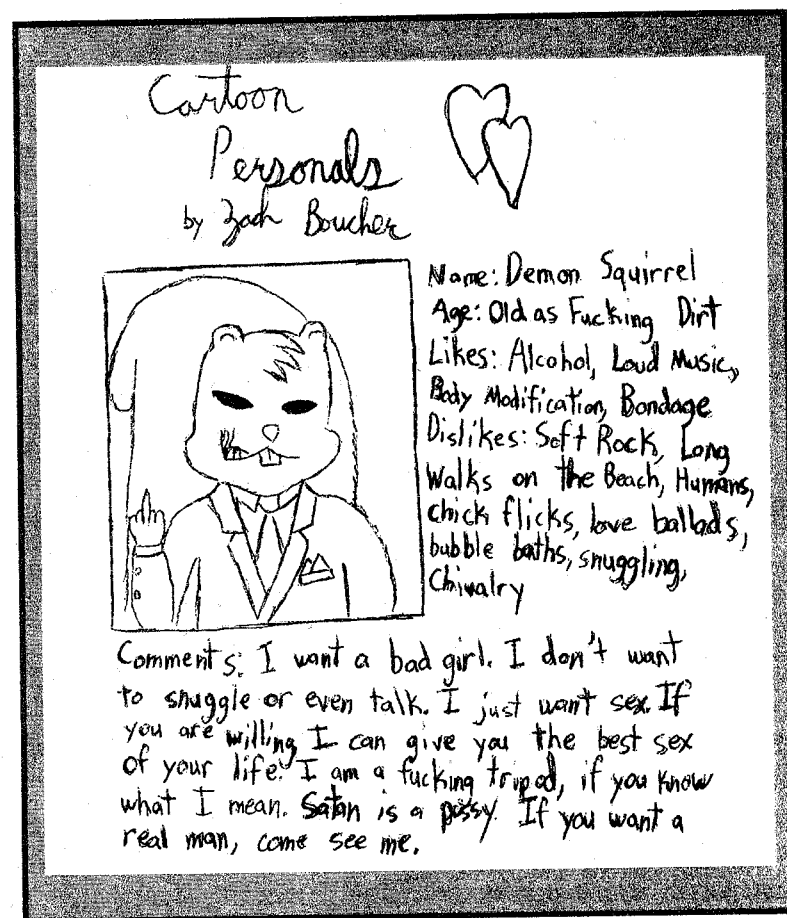 Cartoon
Personals
by Zach Boucher
Name: Demon Squirrel
Age: Old as Fucking Dirt
Likes: Alcohol, Loud Music,
Body Modification, Bondage
Dislikes: Soft Rock, Long
Walks on the Beach, Humans,
chick flicks, love ballads,
bubble baths, snuggling,
Chivalry
Comments: I want a bad girl. I don't want
to snuggle or even talk. I just want sex. If
you are willing I can give you the best sex
of your life. I am a fucking tripod, if you know
what I mean. Satan is a pussy. If you want a
real man, come see me.